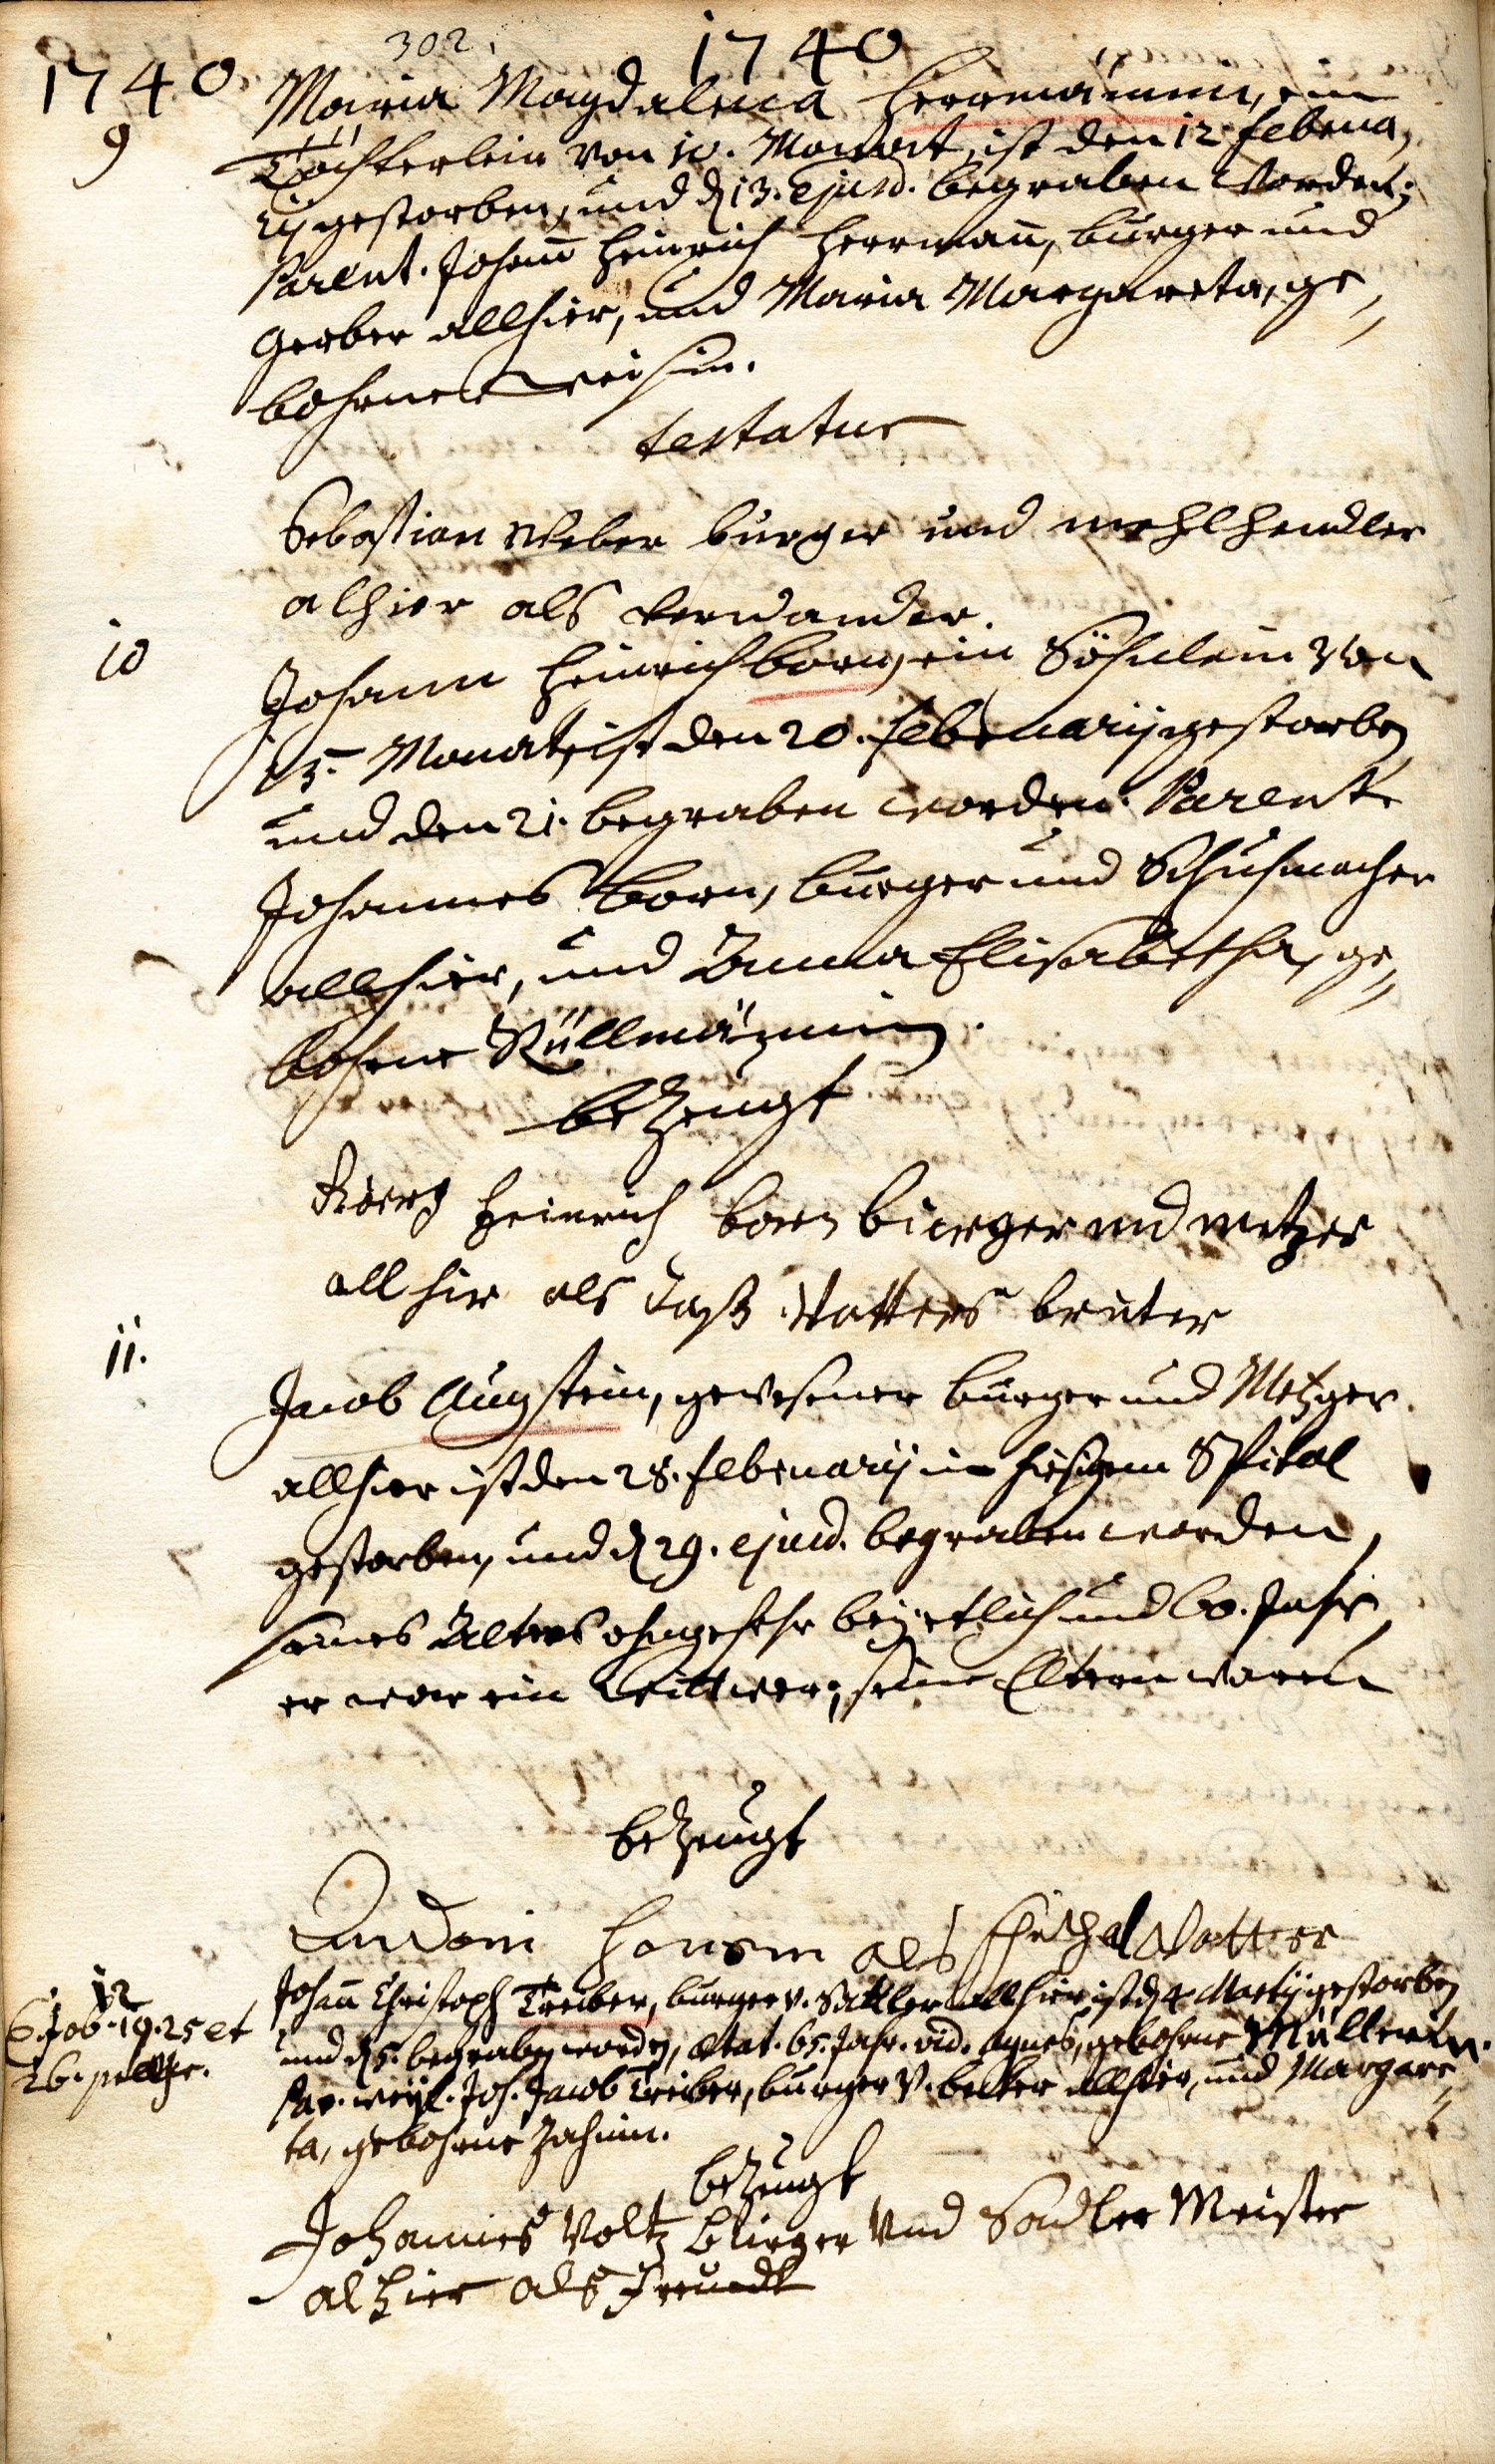 302.
1740
1740
9
Maria Magdalena Herrmännin, ein
Töchterlein von 10. Monat, ist den 12 Februa,
rij gestorben, und d 13. ejusd. begraben worden;
Parent. Johañ Heinrich Herrmañ, burger und
Gerber allhier, und Maria Margareta, ge,,
bohrne
testatur
Sebastian Weber burger und mehlhendler
alhier als verwander.
10
Johann Heinrich Born, ein Söhnlein von
Monat, ist den 20. Februarij gestorben
und den 21. begraben worden. Parent.
Johannes Born, burger und Schuhmacher
allhier, und Anna Elisabetha, ge,,
bohrne Küllmännin.
bezeugt
Heinrich born buerger und metzger
all hir als daß Vatters bruter
11.
Jacob Augstein, gewesener burger und Metzger
allhier ist den 28. Februarij in hiesigem Spital
gestorben, und d 29. ejusd. begraben worden,
seines Alters ohngefehr bey etlich und 60. Jahr,
er war ein Wittwer; seine Eltern waren
bezeugt
als Spithal Vatter
12
6. Job. 19. 25 et
26.
Johañ Christoph Treiber, burger v. Sattler allhier ist d 4 Martij gestorben
und d 5. begraben worden, ætat. 65. Jahr. vid. Agnes, gebohrne Müllerin.
Par. weyl. Joh. Jacob Treiber, burger v. becker allhier, und Margare,,
ta, gebohrne Zahnin.
bezeugt
Johannes Voltz burger und Sadler Meister
alhier als Freundt